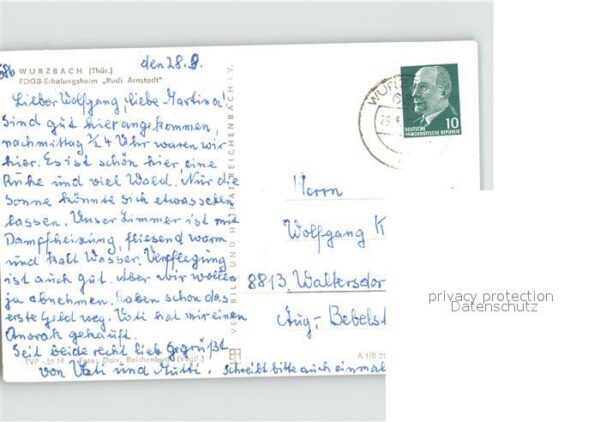 den 28.8.
WURZBACH (Thür.)
FDGB-Erholungsheim „Rudi Arnstadt"
Lieber Wolfgang, liebe Martina!
Sind gut hier angekommen,
nachmittag ½ 4 Uhr waren wir
hier. Es ist schön hier, eine
Ruhe und viel Wald. Nur die
Sonne könnte sich etwas sehen
lassen. Unser Zimmer ist mit
Dampfheizung, fliesend warm
und kalt Wasser. Verpflegung
ist auch gut. Aber wir wollen
ja abnehmen. Haben schon das
erste Geld weg. Vati hat mir einen
Anorak gekauft.
Seit beide recht lieb gegrüßt
von Vati und Mutti. Schreibt bitte auch einmal
Foto: Darr, Reichenbach (Vogtl.)
A 1/0
VERLAG BILD UND HEIMAT REICHENBACH I. V.
10
DEUTSCHE
DEMOKRATISCHE REPUBLIK
Herrn
Wolfgang K
8813, Waltersdor
Aug.-Bebelst
privacy protection
Datenschutz